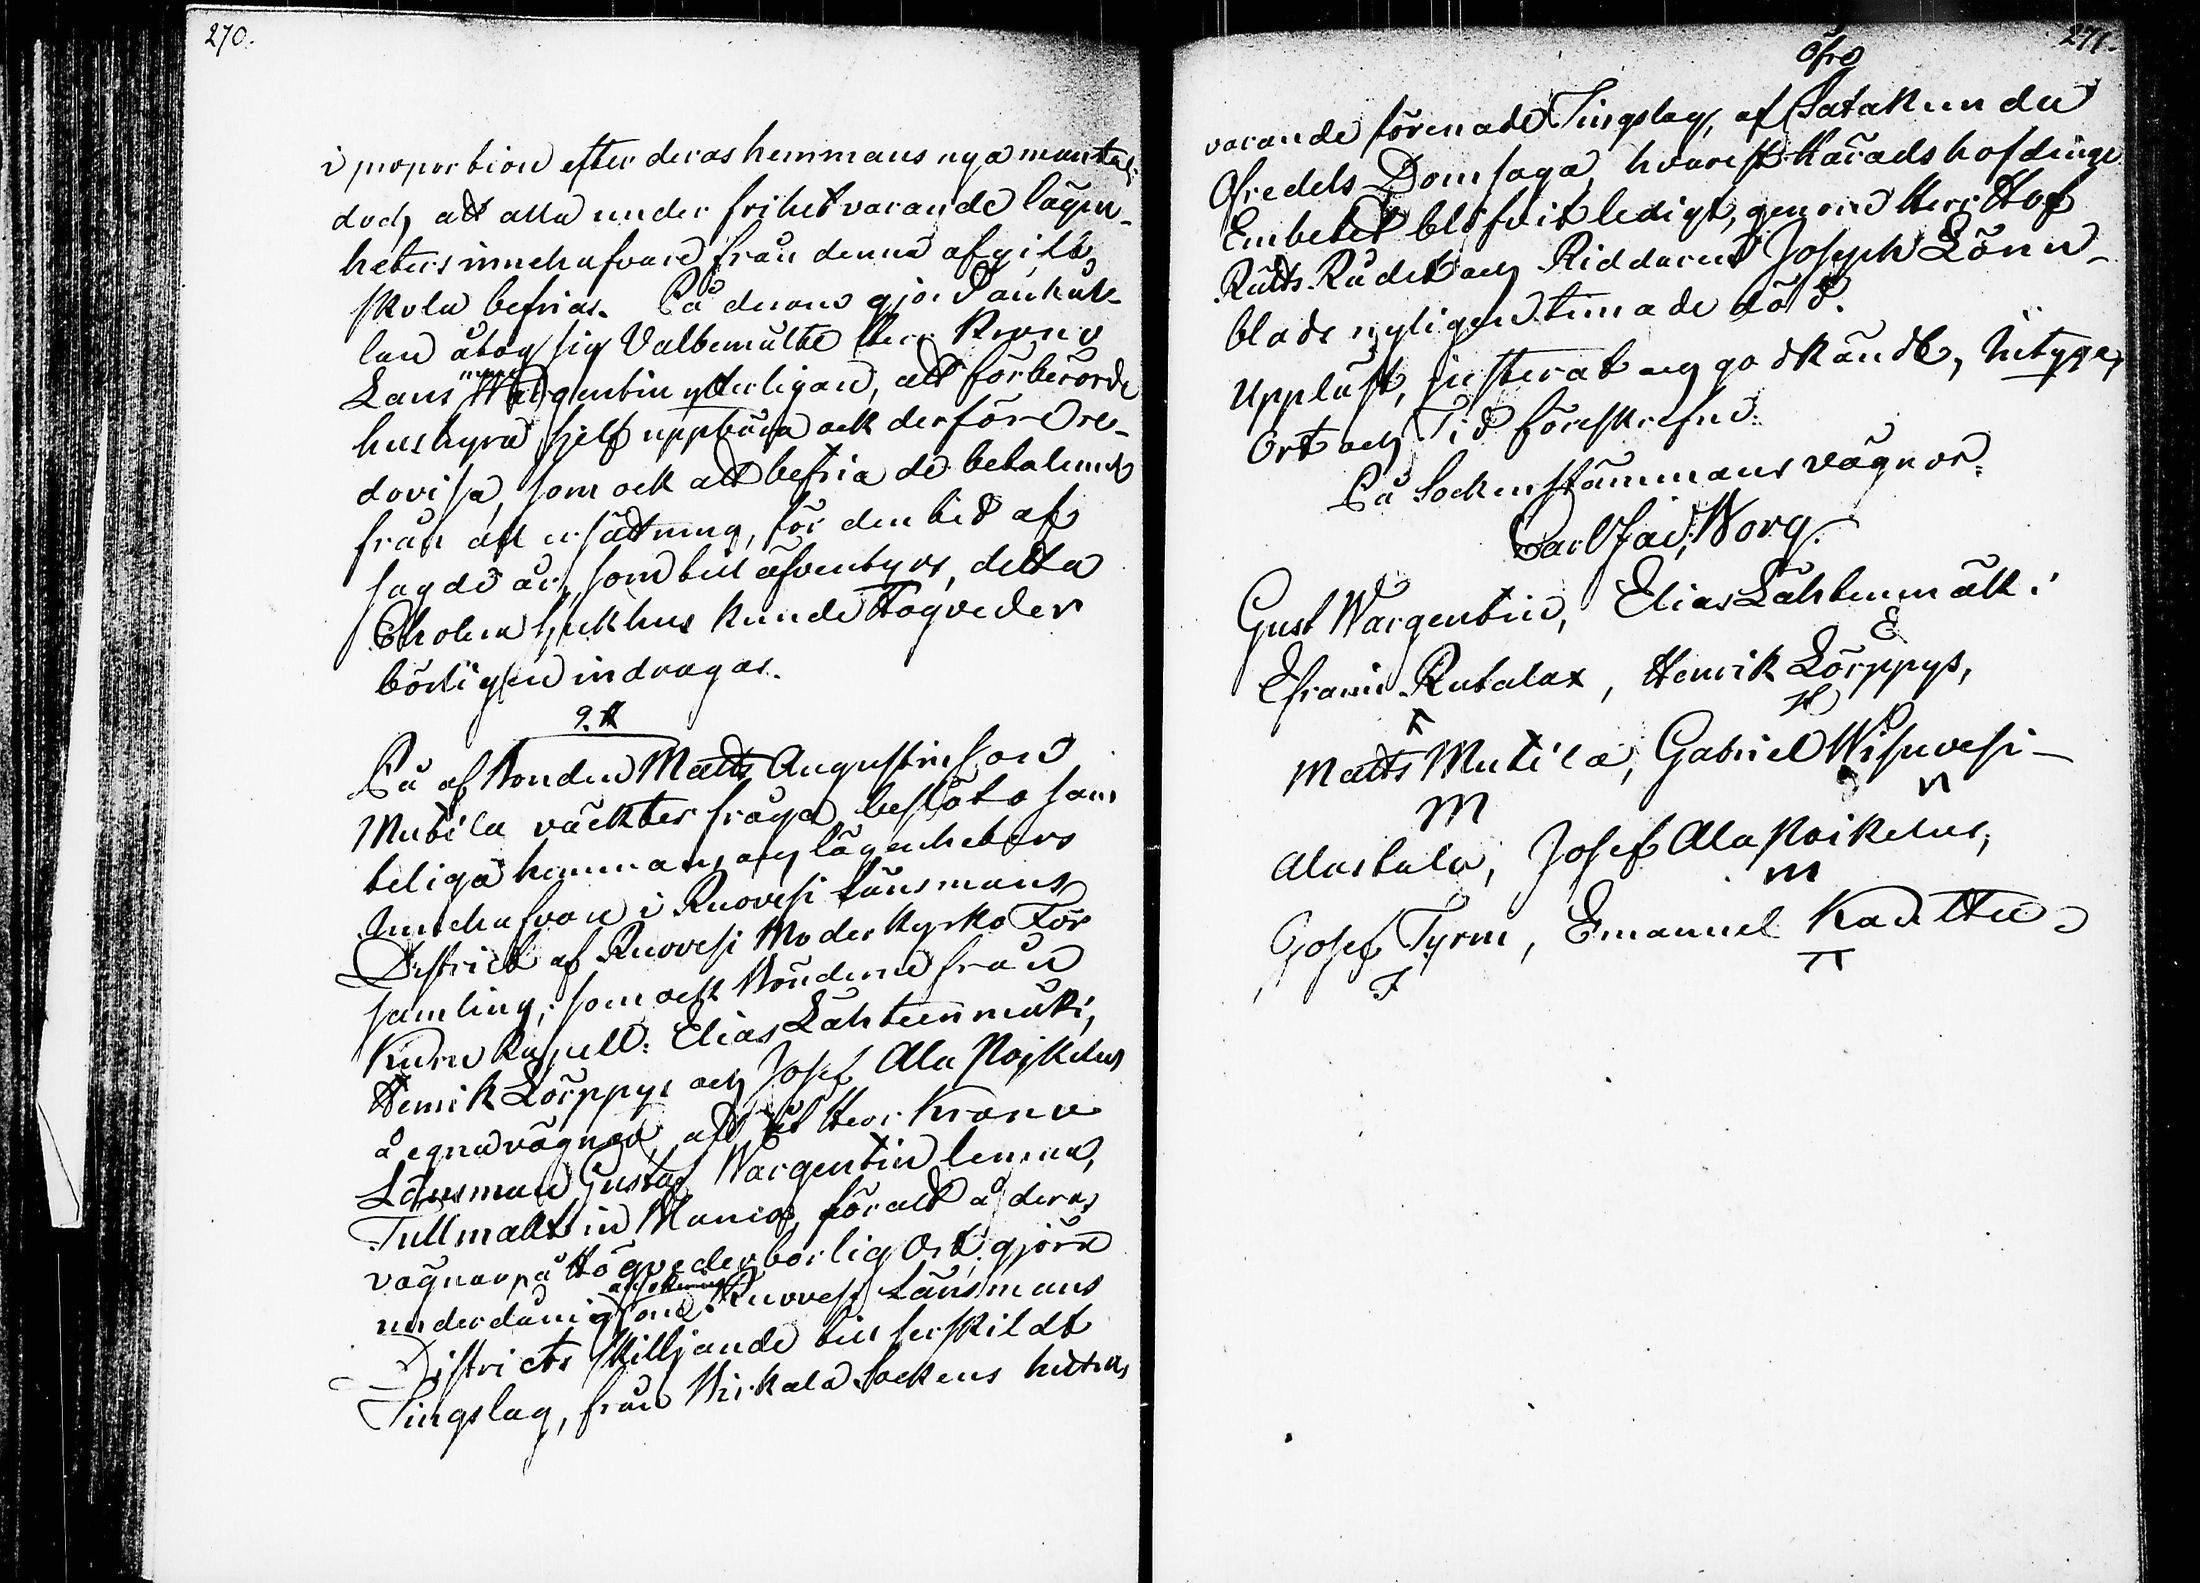 270.
i proportion efter deras hemmans nya mantal;
doch att alla under frihet varande lägen-
heters innehafvare från denna afgift
skola befrias. På derom gjord anhål-
lan åtog sig Välbemälte Herr Krono
Länsman Wargentin ytterligare, att förberörde
hushyra sjelf uppbära och derföre re-
dovisa, som ock att befria de betalande
från all ersättning, för den bit af
sagde år, som till äfventyrs, detta
Cholera sjukhus kunde Högveder
börligen indragas.
9. §
På af Bonden Matts Augustinsson
Mutila väckter fråga beslöto sam
teliga hemmans och lägenheters
Innehafvare i Ruovesi Länsmans
District af Ruovesi Moder kyrko För
samling, som ock Bönderne från
Kuru Kapell: Elias Lähteenmäki,
Henrik Lörppys och Josef Ala Poikelus
å egna vägnar, att åt Herr Krono
Länsman Gustaf Wargentin lemna,
Fullmakt in Manico, för att å deras
vägnar på Högvederbörlig Ort, göra
underdånig ansökning om Ruovesi Länsmans
Districts skilljande till serskildt
Tingslag, från Birkala Sockens hittills
271.
varande förenade Tingslag, af Öfre Satakunda
Öfredels Domsaga, hvarest Härads höfdinge
Embetet blifvit ledigt, genom Herr Hof
Rätts Rådet och Riddaren Joseph Lönn-
blads nyligen timade död.
Uppläst, justerat och godkändt, intygar,
Ort och Tid föreskrefne.
På Sockenstämmans vägnar:
Carl Jac. Borg.
Gust Wargentin, Elias Lähtenmäk:
E
Efraim Rutalax, Henrik Lörppys,
H
Matts Mutila, Gabriel Wisuvesi
M
Alastalo, Josef Ala Poikelus,
m
Josef Tyrni, Emanuel Kauttu
F